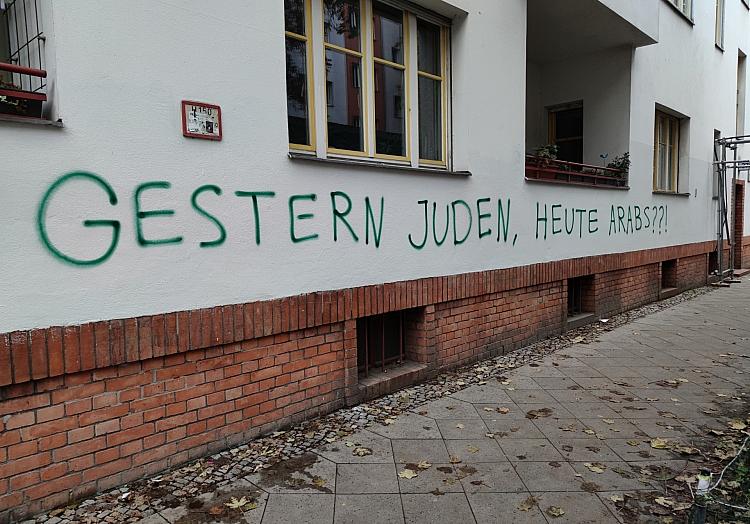 GESTERN JUDEN, HEUTE ARABS??!